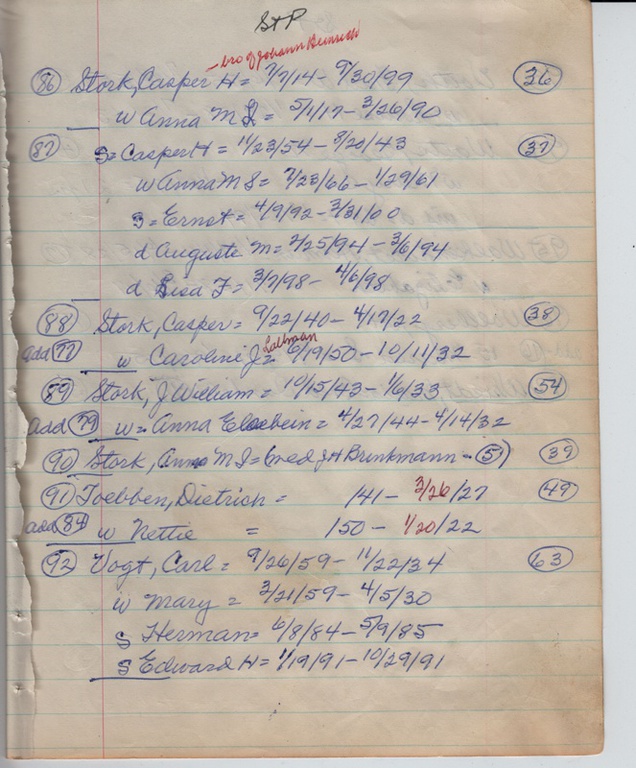 S+P
- bro of Johann Heinrich
86 Stork, Casper H = 7/7/14 - 9/30/99 36
w Anna M L = 5/1/17 - 3/26/90
87 S = Casper H = 11/23/54 - 8/20/43 37
w Anna M S = 7/23/66 - 1/29/61
S = Ernst = 4/9/92 - 3/31/00
d Auguste M = 2/25/94 - 3/6/94
d Lisa F = 3/7/98 - 4/6/98
88 Stork, Casper = 9/22/40 - 4/17/22 38
add 77 w Caroline J = Lallman 6/19/50 - 10/11/32
89 Stork, J William = 10/15/43 - 1/6/33 54
add 79 w = Anna Elsebein = 4/27/44 - 4/14/32
90 Stork, Anna M I = (ned J H Brinkmann - 5) 39
91 Toebben, Dietrich = /41 - 3/26/27 49
add 84 w Nettie = /50 - 1/20/22
92 Vogt, Carl = 9/26/59 - 11/22/34 63
w Mary = 3/21/59 - 4/5/30
S Herman = 6/8/84 - 5/9/85
S Edward H = 1/19/91 - 10/29/91